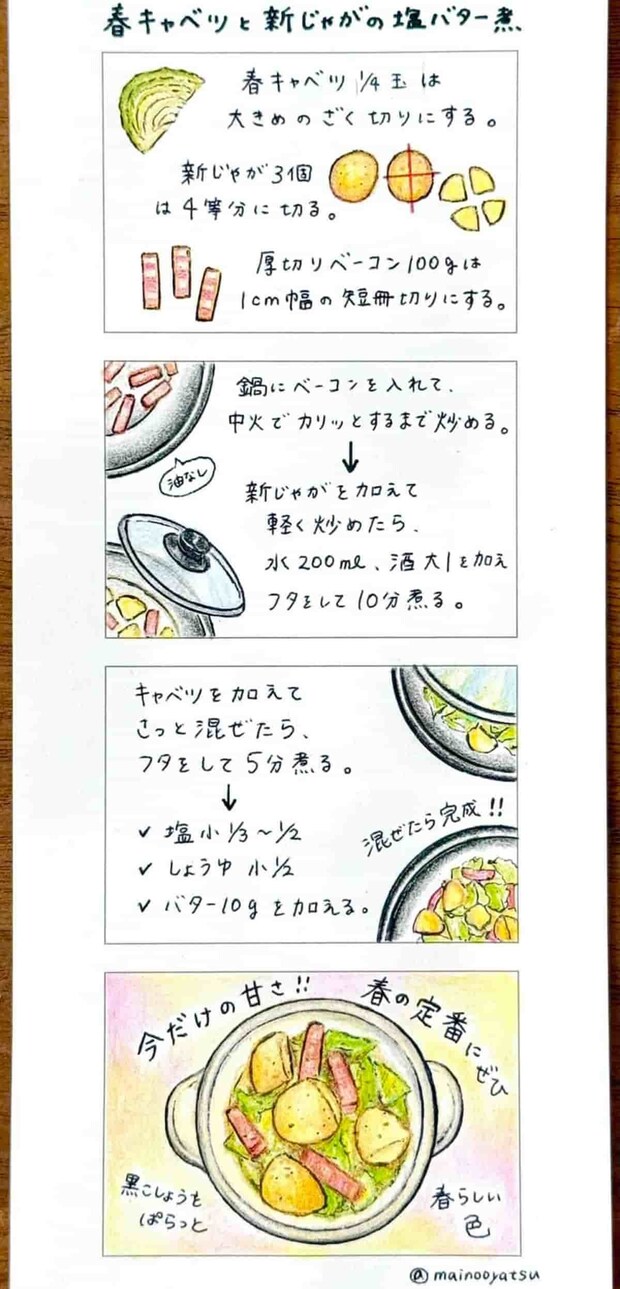 春キャベツと新じゃがの塩バター煮
春キャベツ 1/4玉は
大きめのざく切りにする。
新じゃが3個
は4等分に切る。
厚切りベーコン100gは
1cm幅の短冊切りにする。
鍋にベーコンを入れて、
中火でカリッとするまで炒める。
↓
油なし
新じゃがを加えて
軽く炒めたら、
水200ml、酒大1を加え
フタをして10分煮る。
キャベツを加えて
さっと混ぜたら、
フタをして5分煮る。
↓
✓ 塩小1/3~1/2
✓ しょうゆ小1/2
✓ バター10gを加える。
混ぜたら完成!!
今だけの甘さ!!
春の定番にぜひ
黒こしょうも
ぱらっと
春らしい
色
@mainooyatsu